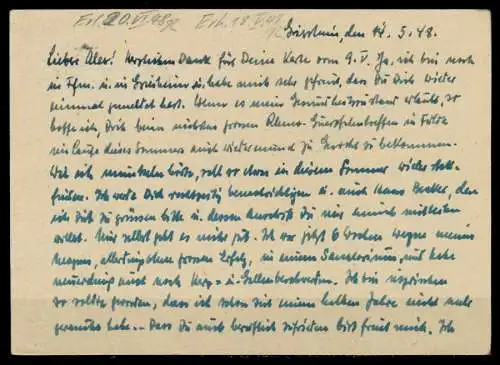 Erl. 20. VI 48 Erh. 18. V. 48
Griesheim, den 14. 5. 48.
Lieber Alex! Herzlichen Dank für Deine Karte vom 9. V. Ja, ich bin noch
in Ffm. u. in Griesheim u. habe mich sehr gefreut, dass Du Dich wieder
einmal gemeldet hast. Wenn es mein Gesundheitszustand erlaubt, so
hoffe ich, Dich beim nächsten grossen Rhena- in Fulda
im Laufe dieses Sommers auch wieder einmal zu Gesicht zu bekommen.
Wie ich munkeln hörte, soll er etwa in diesem Sommer wieder statt-
finden. Ich werde Dich rechtzeitig benachrichtigen u. auch Hans Becker, den
ich Dich zu grüssen bitte u. dessen Anschrift Du mir einmal mitteilen
willst. Mir selbst geht es nicht gut. Ich war jetzt 6 Wochen wegen meines
Magens, allerdings ohne grossen Erfolg, in einem Sanatorium, und habe
neuerdings auch noch Herz- u. Gallenbeschwerden. Ich bin inzwischen
so solide geworden, dass ich schon seit einem halben Jahre nicht mehr
geraucht habe. - Dass Du auch beruflich zufrieden bist freut mich. Ich